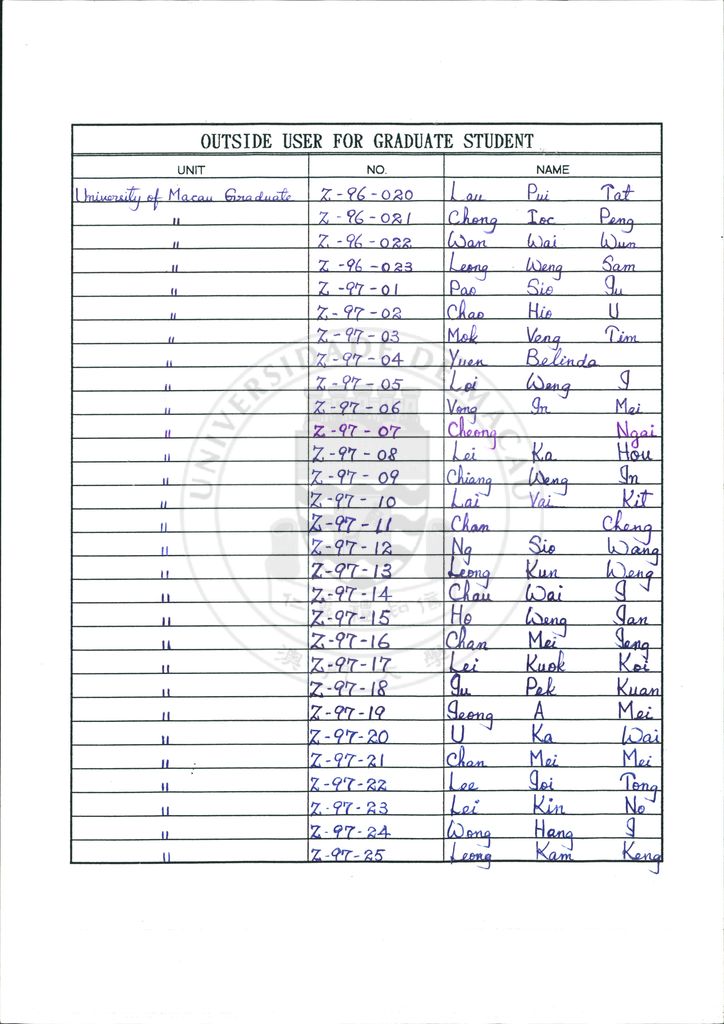 OUTSIDE USER FOR GRADUATE STUDENT
UNIT NO. NAME
University of Macau Graduate Z-96-020 Lau Pui Tat
" Z-96-021 Chong Ioc Peng
" Z-96-022 Wan Wai Wun
" Z-96-023 Leong Weng Sam
" Z-97-01 Pao Sio Iu
" Z-97-02 Chao Hio U
" Z-97-03 Mok Veng Tim
" Z-97-04 Yuen Belinda
" Z-97-05 Loi Weng I
" Z-97-06 Vong In Mei
" Z-97-07 Cheong Ngai
" Z-97-08 Lei Ka Hou
" Z-97-09 Chiang Weng In
" Z-97-10 Lai Vai Kit
" Z-97-11 Chan Cheng
" Z-97-12 Ng Sio Wang
" Z-97-13 Leong Kun Weng
" Z-97-14 Chau Wai I
" Z-97-15 Ho Weng Ian
" Z-97-16 Chan Mei Ieng
" Z-97-17 Lei Kuok Koi
" Z-97-18 Iu Pek Kuan
" Z-97-19 Ieong A Mei
" Z-97-20 U Ka Wai
" Z-97-21 Chan Mei Mei
" Z-97-22 Lee Ioi Tong
" Z-97-23 Lei Kin No
" Z-97-24 Wong Hang I
" Z-97-25 Leong Kam Keng
UNIVERSIDADE DE MACAU
仁 知信
澳 大學